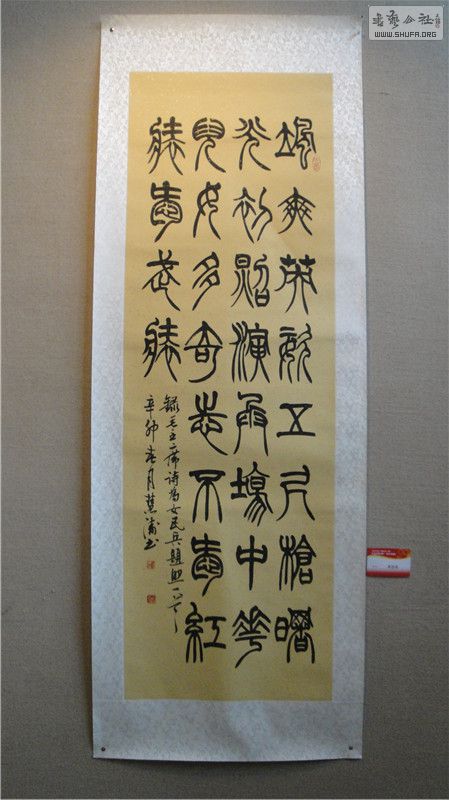 書藝公社
WWW.SHUFA.ORG
颯爽英姿五尺槍曙
光初照演兵場中華
兒女多奇志不愛紅
裝愛武裝
錄毛主席诗为女民兵題照一首
辛卯春月慧蒲书